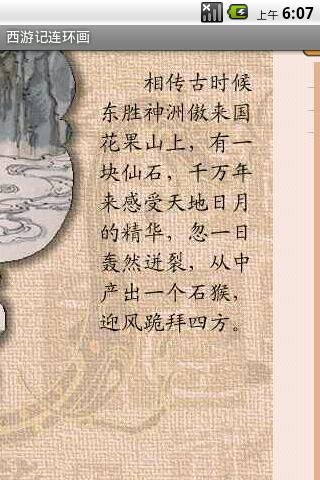 上午 6:07
西游记连环画
相传古时候
东胜神洲傲来国
花果山上，有一
块仙石，千万年
来感受天地日月
的精华，忽一日
轰然迸裂，从中
产出一个石猴，
迎风跪拜四方。